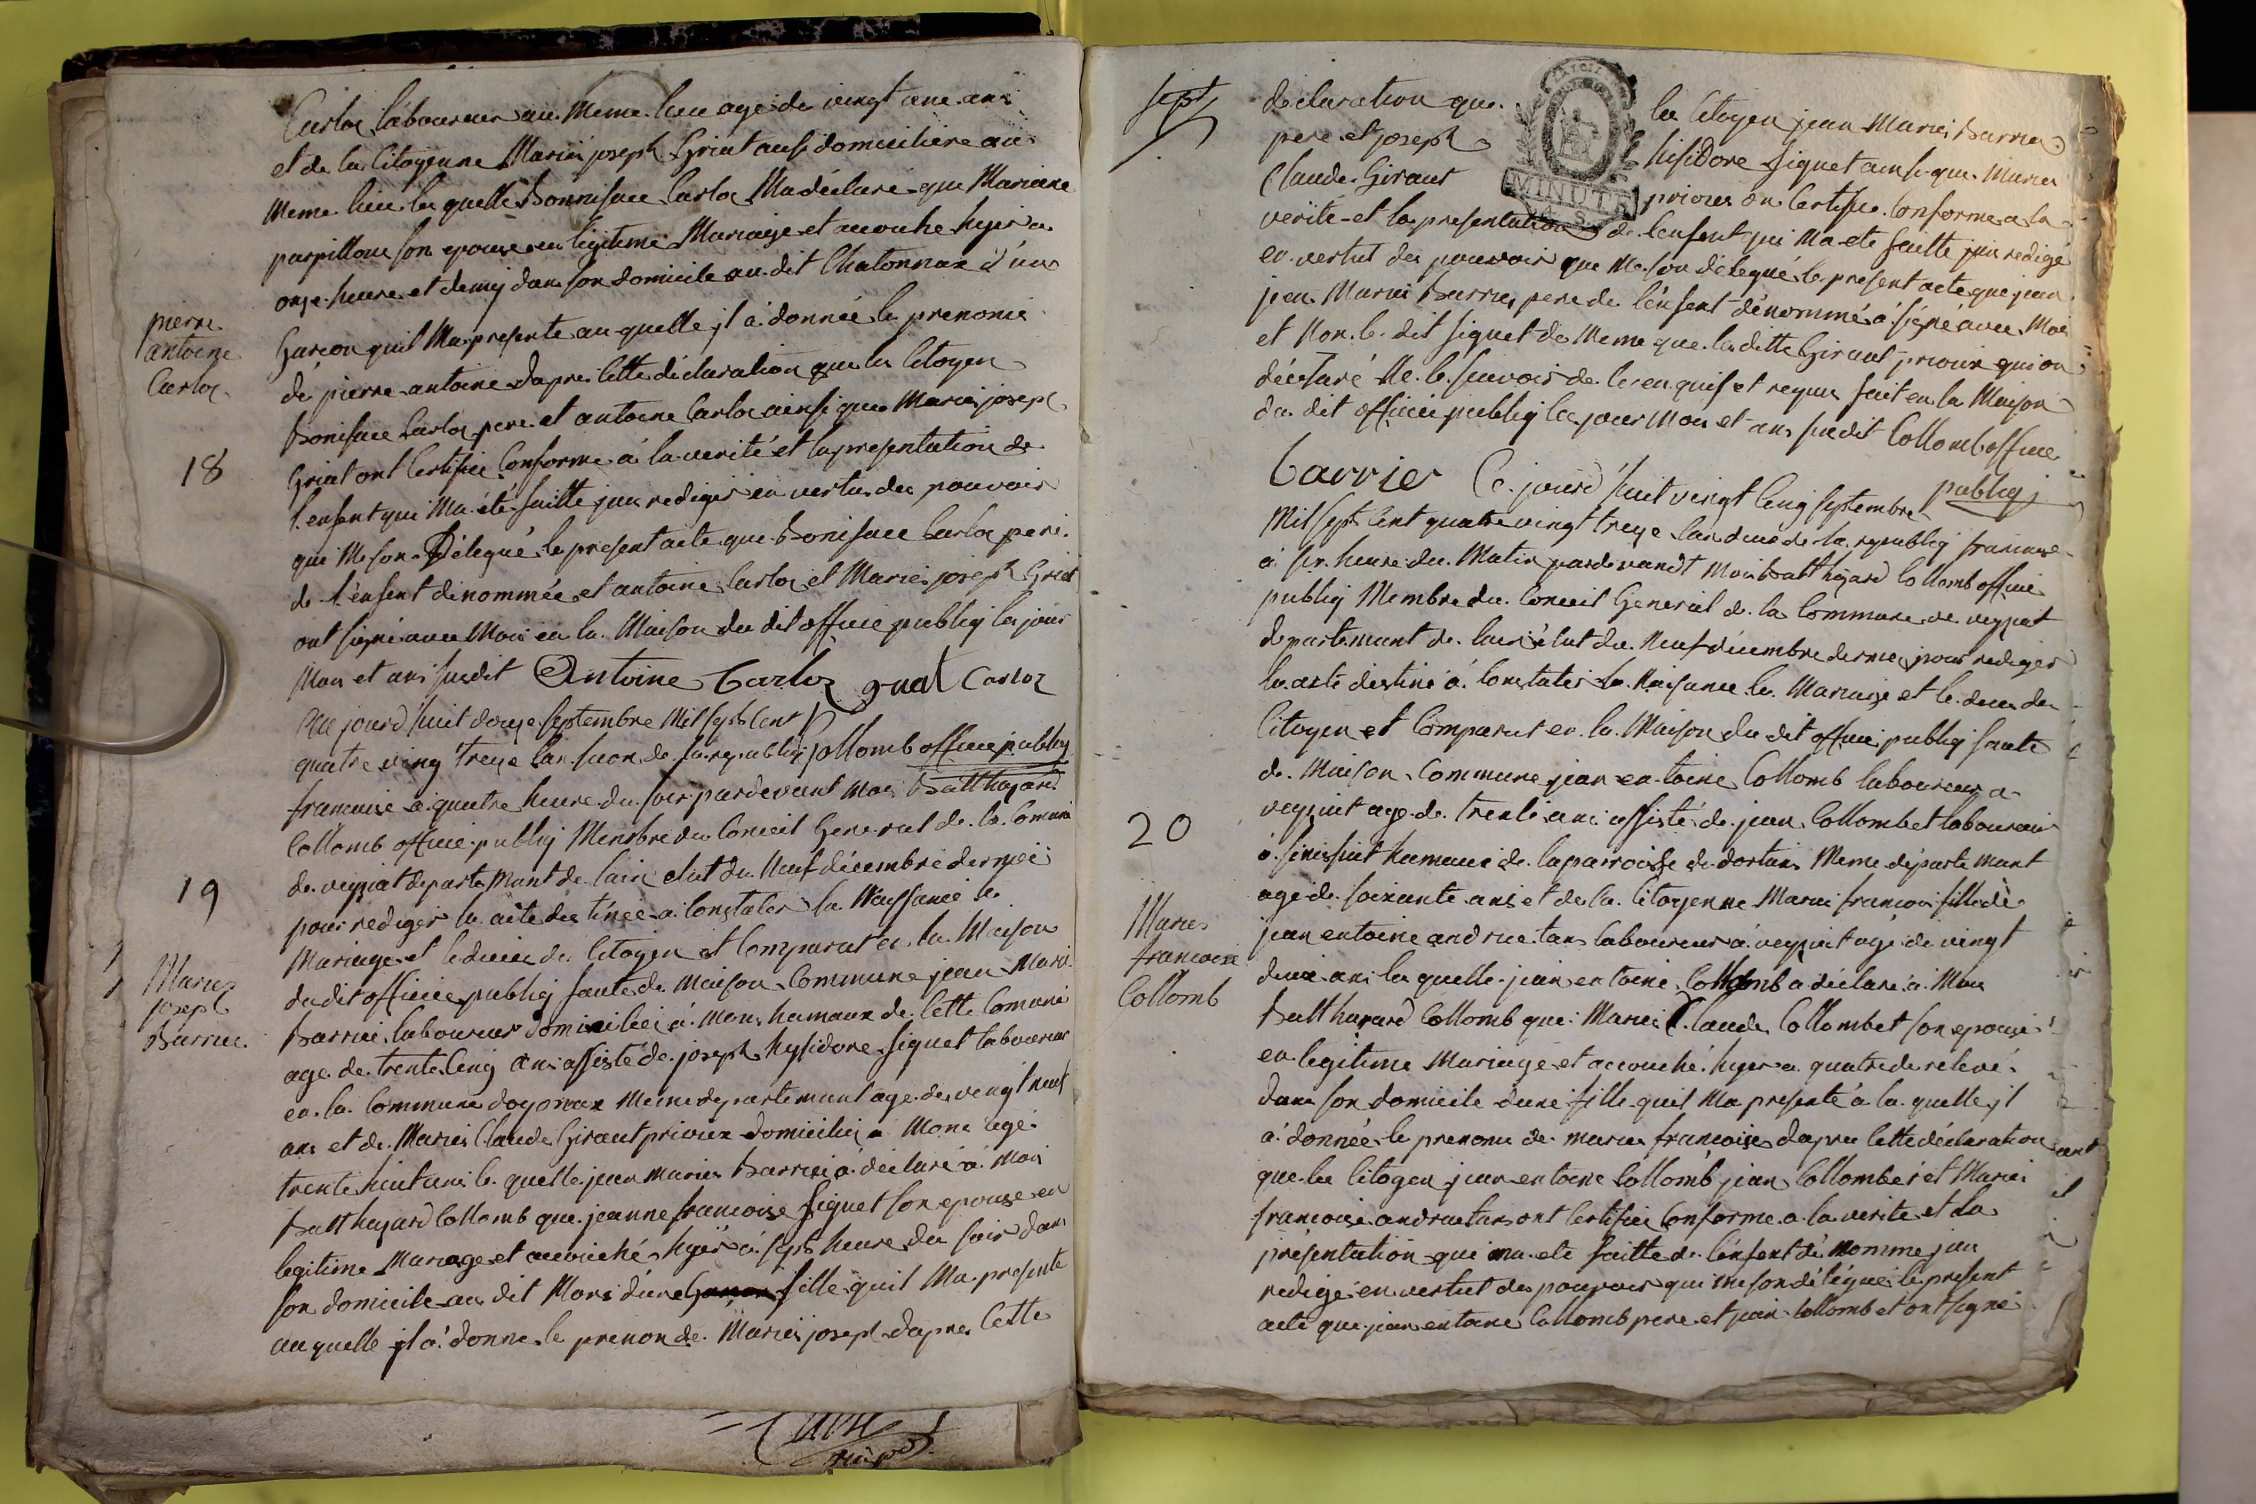 Carloz laboureur au meme lieu age de vingt une ans
et de la Citoyenne Marie joseph Griat ausi domiciliere au
meme lieu la quelle Bonniface Carloz Ma déclaré que Mariane
parpillon son epouse en legitime Mariage et acouche hyer a
onze heure et demy dans son domicile au dit Chatonnax d'un
pierre
antoine
Carloz
Garcon quil Ma presente au quelle jl a donnée le prenomé
de pierre antoine dapres cette déclaration que le Citoyen
Boniface Carloz pere et antoine Carloz ainsi que Marie joseph
18
Griat ont Certifié Conforme á la verité et la presentation de
l'enfent qui Ma été faitte jai redigés en vertus des pouvoir
qui Me son Délegué le present acte que Boniface Carloz pere
de l'enfent dénommée et antoine Carloz et Marie joseph Griat
ont signé avec Moi en la Maison du dit officie publiq les jour
Mois et ans susdit Antoine Carloz griat Carloz
Ce jourd'huit douze septembre Mil sept Cent Collomb officie publiq
quatre ving treize lan second de la republiq
francaise a quatre heure du soir pardevant Moi Balthazard
Collomb officie publiq Membre du Conceil General de la Comune
19
de veyziat departemant de lain elut du Neuf décembre dernié
pour rediger les acte destinée a Constater la Naissance le
Mariage et le décée des Citoyen et Comparut en la Maison
Marie
joseph
Barrié
du dit officie publiq faute de Maison Commune jean Marie
Barrié laboureur domicilié á Mons hamaux de Cette Comune
age de trente Cinq ans assisté de joseph hysidore figuet laboureur
en la Commune doyonnax Meme departemant age de vingt neuf
ans et de Marie Claude Giraut prioux domiciliée á Mons agé
trente huit ans le quelle jean Marie Barrié á déclaré á Moi
Balthazard Collomb que jeanne francoise figuet son epouse en
legitime Mariage et acouché hyer á sept heure du soir dans
son domicile au dit Mons dune fille quil Ma presente
au quelle jl a donne le prenon de Marie joseph dapres Cette
sept
declaration que le Citoyen jean Marie Barrié
pere et joseph hisidore figuet ainsi que Marie
Claude Giraut prioux on Certifie Conforme a la
MINUTE
verité et la presentation de l'enfent qui Ma ete faitte jai redigé
en vertut des pouvoir que Me son délegué le present acte que jean
jean Marie Barrié pere de l'enfent dénommé a signe avec Moi
et Non le dit figuet de Meme que la ditte Giraut prioux qui on
déclaré Ne le savoir de ce enquis et requis fait en la Maison
du dit officie publiq les jour Moi et ans susdit Collomb officie
publiq
Carrier Ce jourd'huit vingt Cinq septembre
Mil sept Cent quatre vingt treize lan deux de la republiq francaise
á six heure du Matin pardevandt Moi Balthazard Collomb officie
publiq Membre du Conceil General de la Commune de veyziat
departemant de lain elut du Neuf décembre dernié pour rediger
les acte destiné á Constater la Naisance le Mariage et le decee des
Citoyen et Comparut en la Maison du dit officie publiq faute
de Maison Commune jean antoine Collomb laboureur a
veyziat age de trente ans assisté de jean Collombet laboureur
20
hamaux de la parroisse de dortans Meme départemant
age de soixante ans et de la Citoyenne Marie francoise fille de
Marie
francoise
Collomb
jean antoine andruetan laboureur a veyziat agé de vingt
deux ans la quelle jean antoine Collomb a déclaré á Moi
Balthazard Collomb que Marie Claude Collombet son epouse
en legitime Mariage et accouché hyer a quatre de relevé
dans son domicile dune fille quil Ma presenté á la quelle jl
a donnée le prenome de marie francoise dapres Cette déclaration
que les Citoyen jean antoine Collomb jean Collombet et Marie
francoise andruetan ont Certifie Conforme a la verite et la
présentation qui ma ete faitte de l'enfent dé nomme jai
redigé en vertut des pouvoir qui me son délégué le present
acte que jean antoine Collomb pere et jean Collomb et ont signé